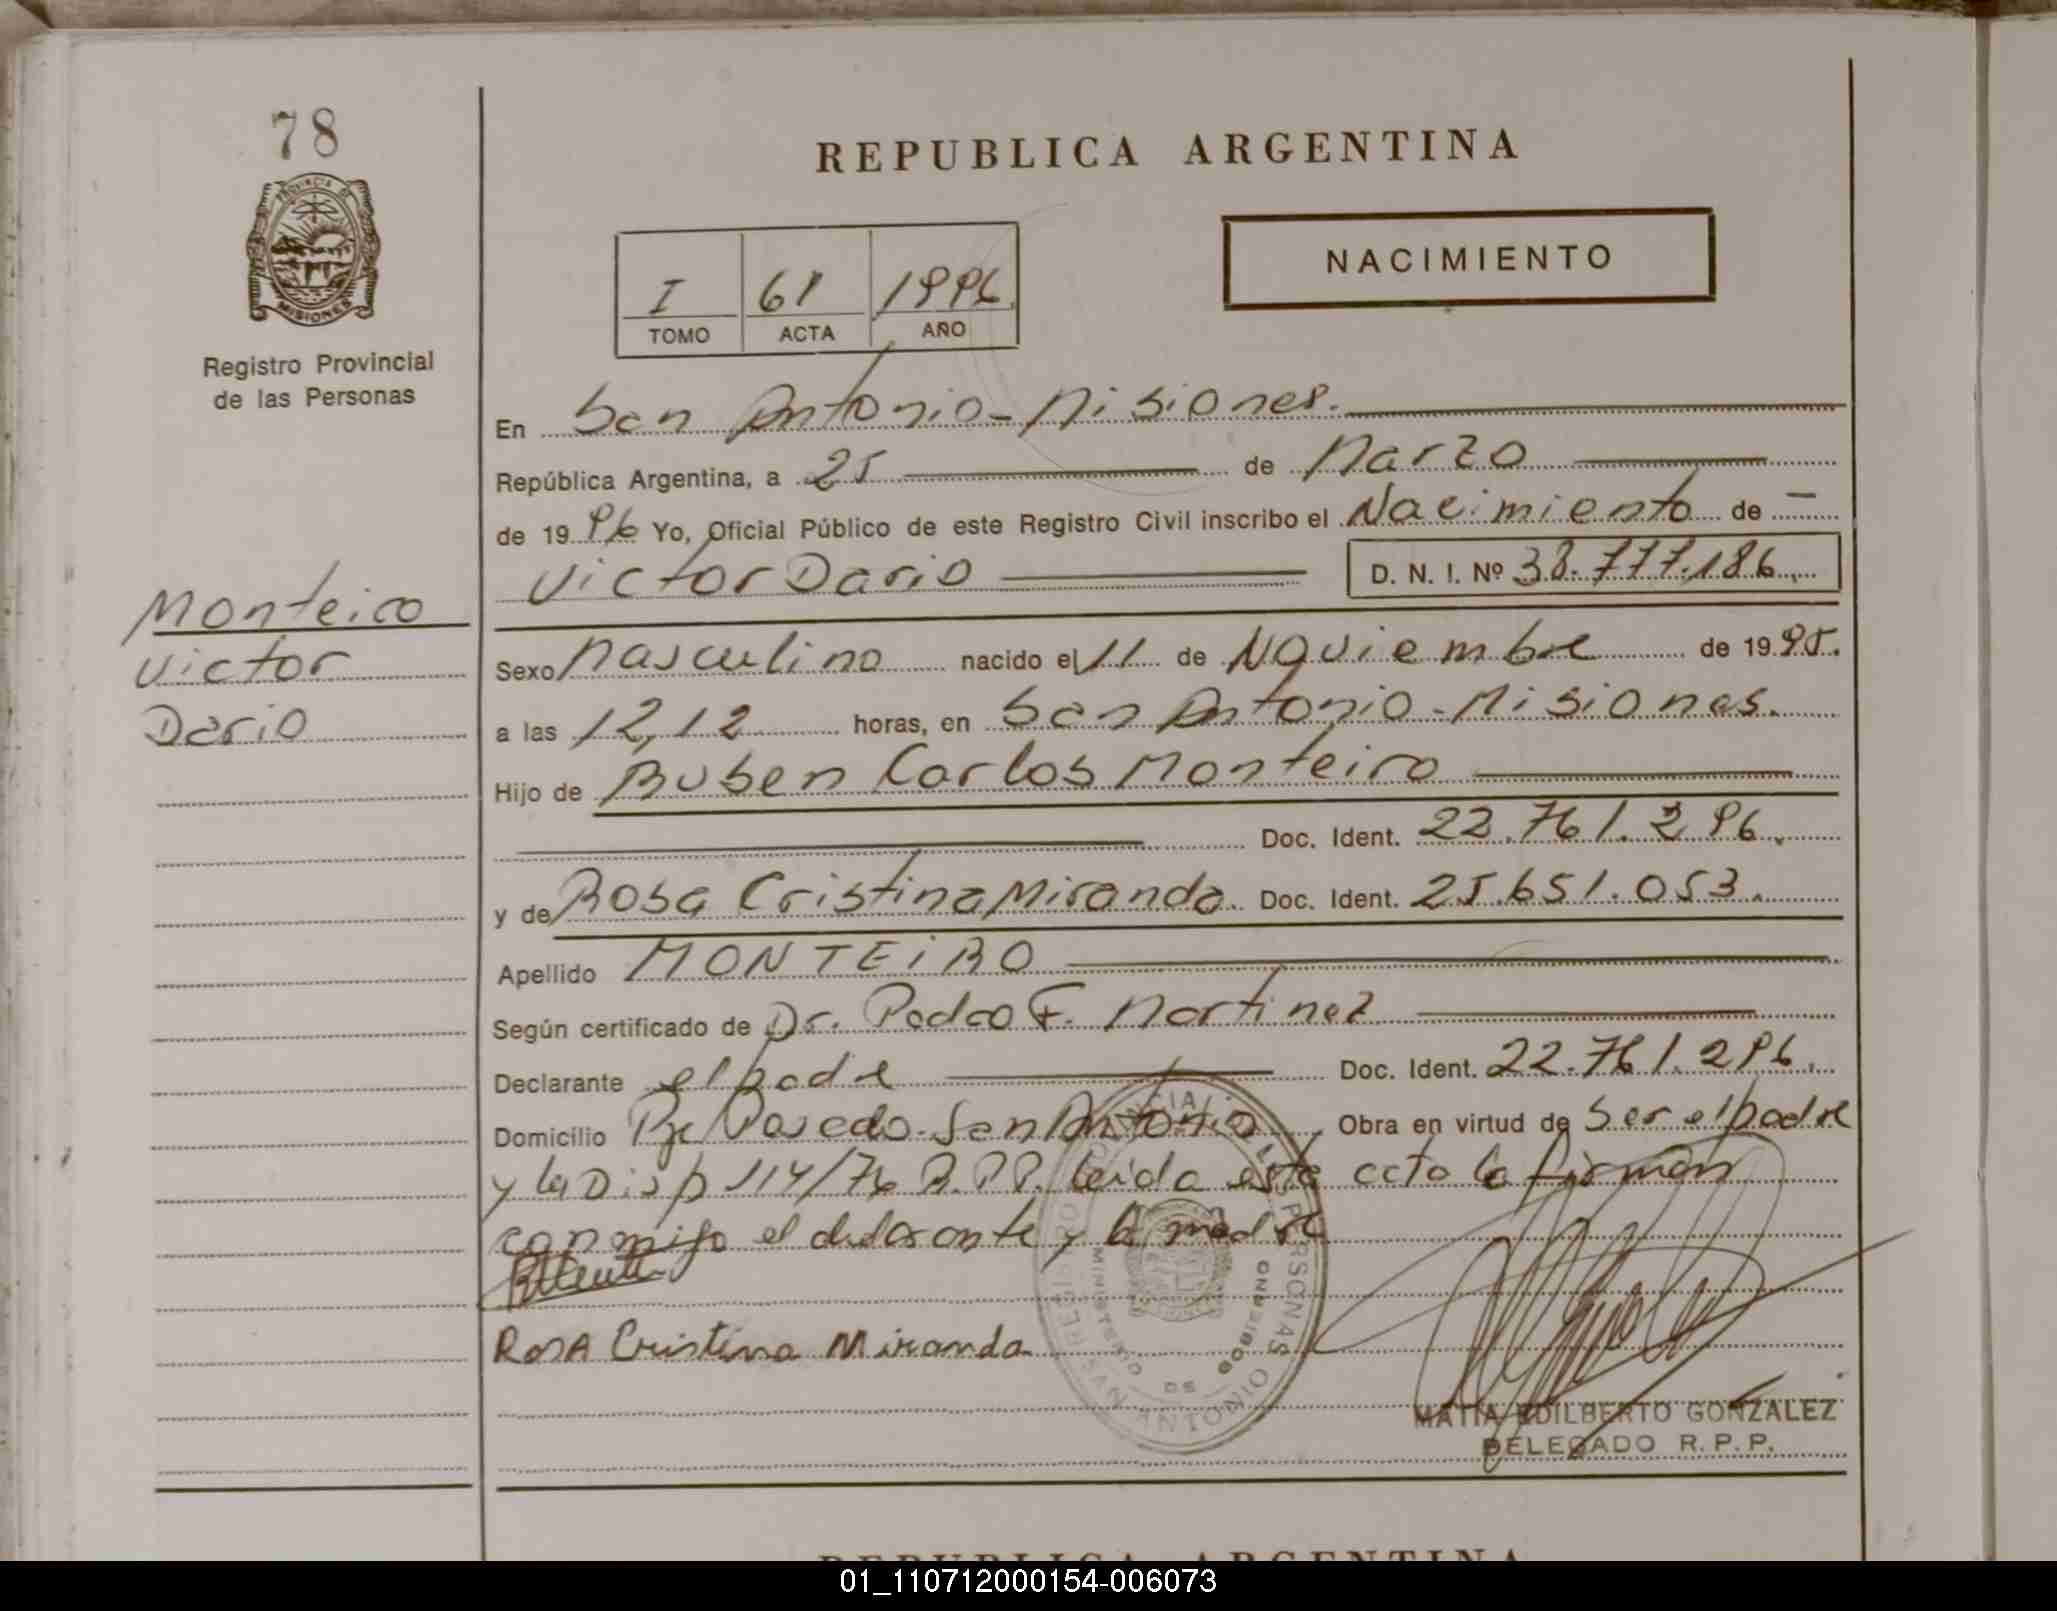 78
PROVINCIA DE
MISIONES
Registro Provincial
de las Personas
Monteiro
Victor
Dario
REPUBLICA ARGENTINA
NACIMIENTO
I 61 1996
TOMO ACTA AÑO
En San Antonio - Misiones.
República Argentina, a 25 de Marzo
de 1996 Yo, Oficial Público de este Registro Civil inscribo el Nacimiento de
Victor Dario D. N. I. Nº 38.777.186.
Sexo Masculino nacido el 11 de Noviembre de 1995.
a las 12,12 horas, en San Antonio - Misiones.
Hijo de Ruben Carlos Monteiro
Doc. Ident. 22.761.296.
y de Rosa Cristina Miranda. Doc. Ident. 25.651.053.
Apellido MONTEIRO
Según certificado de Dr. Pedro F. Martinez
Declarante el padre Doc. Ident. 22.761.296.
Domicilio Pje Posedo - San Antonio Obra en virtud de Ser el padre
y la Disp 114/76 R.P.P. leida este acta la firman
conmigo el declarante y la madre
Rosa Cristina Miranda
SAN ANTONIO
MINISTERIO DE GOBIERNO
MATIA EDILBERTO GONZALEZ
DELEGADO R. P. P.
REPUBLICA ARGENTINA
01_110712000154-006073